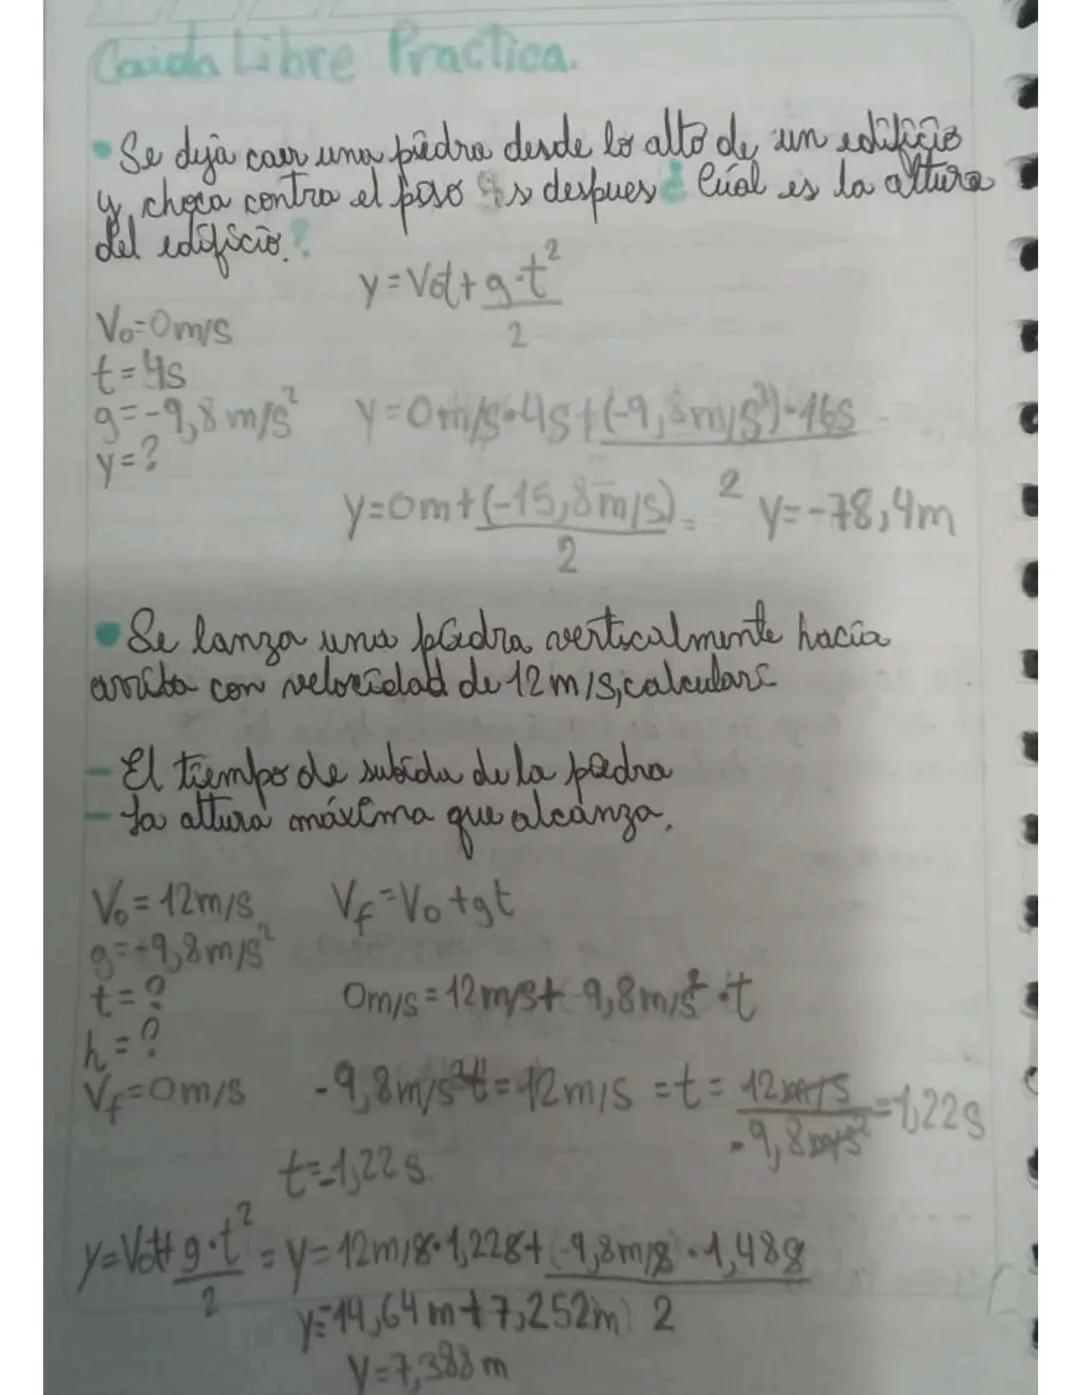 Caida Libre Practica.
• Se deja caer una piedra desde lo alto de un edificio
y choca contra el piso 4s despues ¿Cúal es la altura
del edificio?
y=Vot+g·t²
2
Vo=0m/s
t=4s
g=-9,8m/s²
y=?
y=0m/s·4s+(-9,8m/s²)·16s
2
y=0m+(-15,8m/s)=
2
y=-78,4m
• Se lanza una piedra verticalmente hacia
arriba con velocidad de 12m/s, calcular:
- El tiempo de subida de la piedra
- La altura máxima que alcanza.
Vo=12m/s
g=-9,8m/s²
t=?
h=?
Vf=0m/s
Vf=Vo+gt
0m/s=12m/s+ 9,8m/s²·t
-9,8m/s²t=12m/s =t= 12m/s =1,22s
-9,8m/s²
t=1,22s.
y=Vot+g·t² = y=12m/s·1,22s+(-9,8m/s·1,48s
2 2
y=14,64m+7,252m
y=7,388m